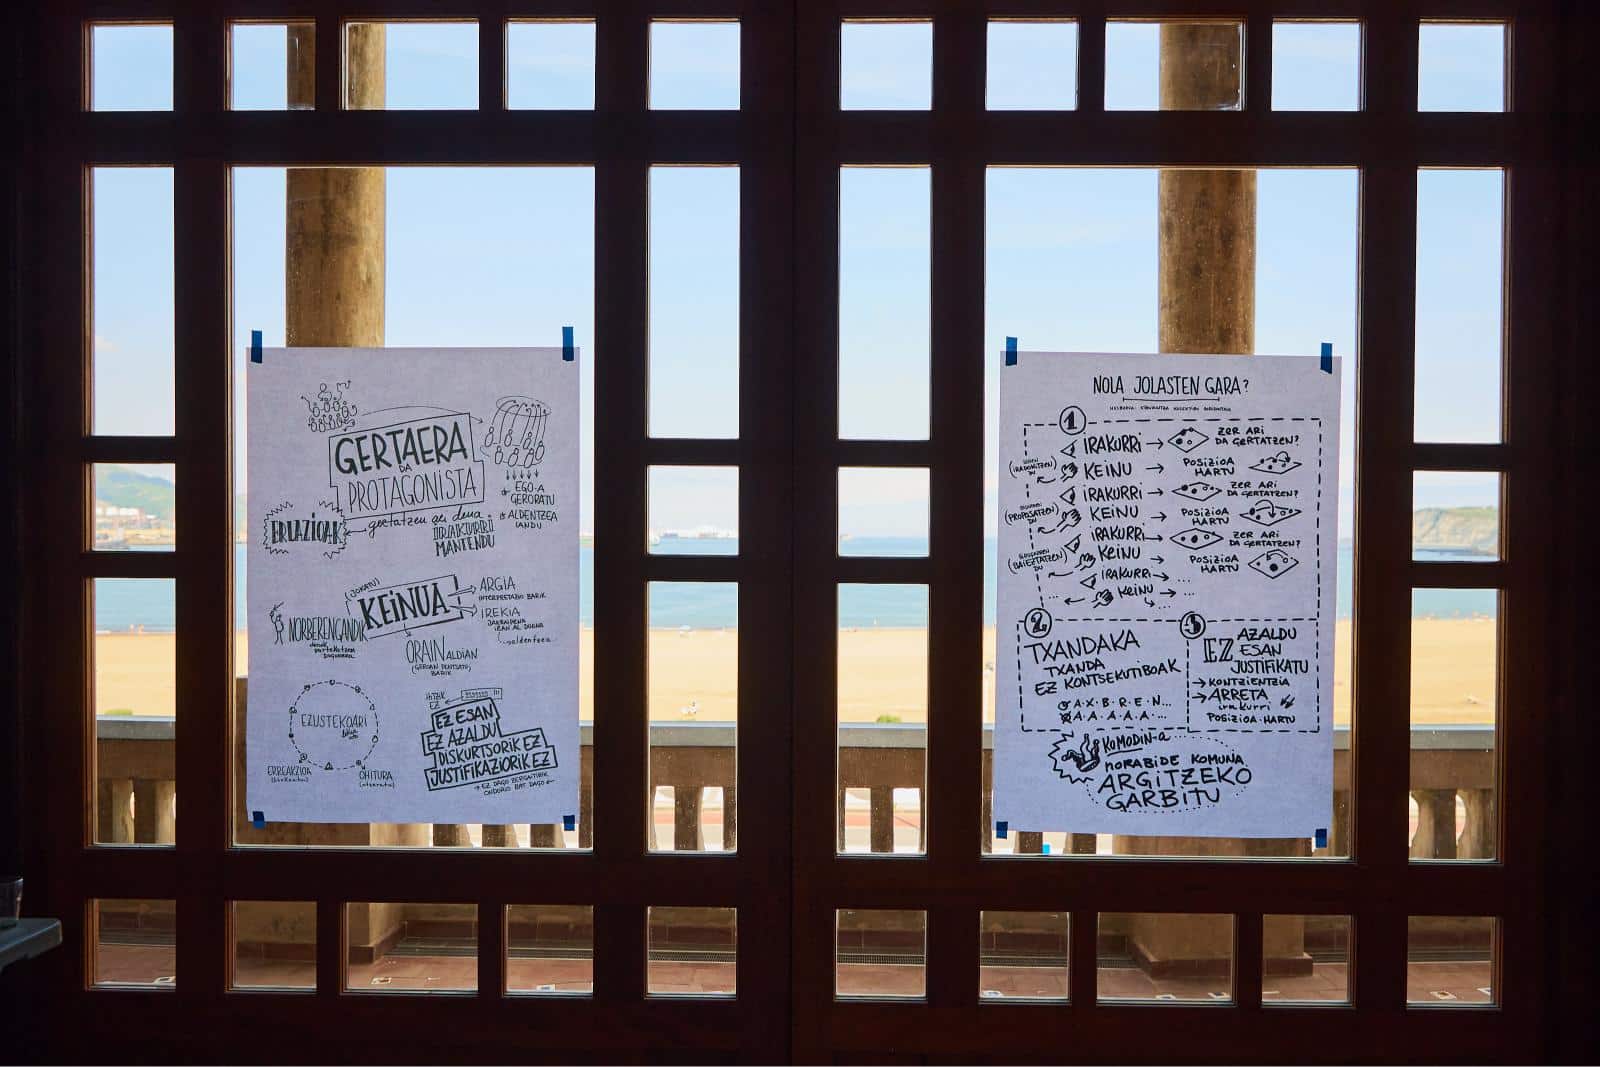 GERTAERA
DA
PROTAGONISTA
EGO-A
GERORATU
ALDENTZEA
LANDU
ERLAZIOAK
gertatzen ari dena
IRAKURRI
MANTENDU
(JOKATU)
KEINUA
ARGIA
INTERPRETAZIO BARIK
IREKIA
JARRAIPENA
IZAN AL DUENA
NORBERENGANDIK
ORAIN ALDIAN
(GEROAN PENTSATU)
BARIK
EZUSTEKOARI
ERREAKZIOA
OHITURA
HITZIK
EZ
EZ ESAN
EZ AZALDU
DISKURTSORIK EZ
JUSTIFIKAZIORIK EZ
→ EZ DAGO ZERGAITIRIK
ONDORIO BAT DAGO ←
NOLA JOLASTEN GARA?
1
IRAKURRI → ZER ARI
DA GERTATZEN?
KEINU → POSIZIOA
HARTU
IRAKURRI → ZER ARI
DA GERTATZEN?
(PROPOSATZEN)
DU
KEINU → POSIZIOA
HARTU
IRAKURRI → ZER ARI
DA GERTATZEN?
(BAIEZTATZEN)
DU
KEINU → POSIZIOA
HARTU
IRAKURRI → ...
... KEINU → ...
2
TXANDAKA
TXANDA
EZ KONTSEKUTIBOAK
A·X·B·R·E·N...
A·A·A·A·A...
3
EZ AZALDU
ESAN
JUSTIFIKATU
→ KONTZIENTZIA
→ ARRETA
irakurri
POSIZIOA·HARTU
KOMODIN-a
NORABIDE KOMUNA
ARGITZEKO
GARBITU